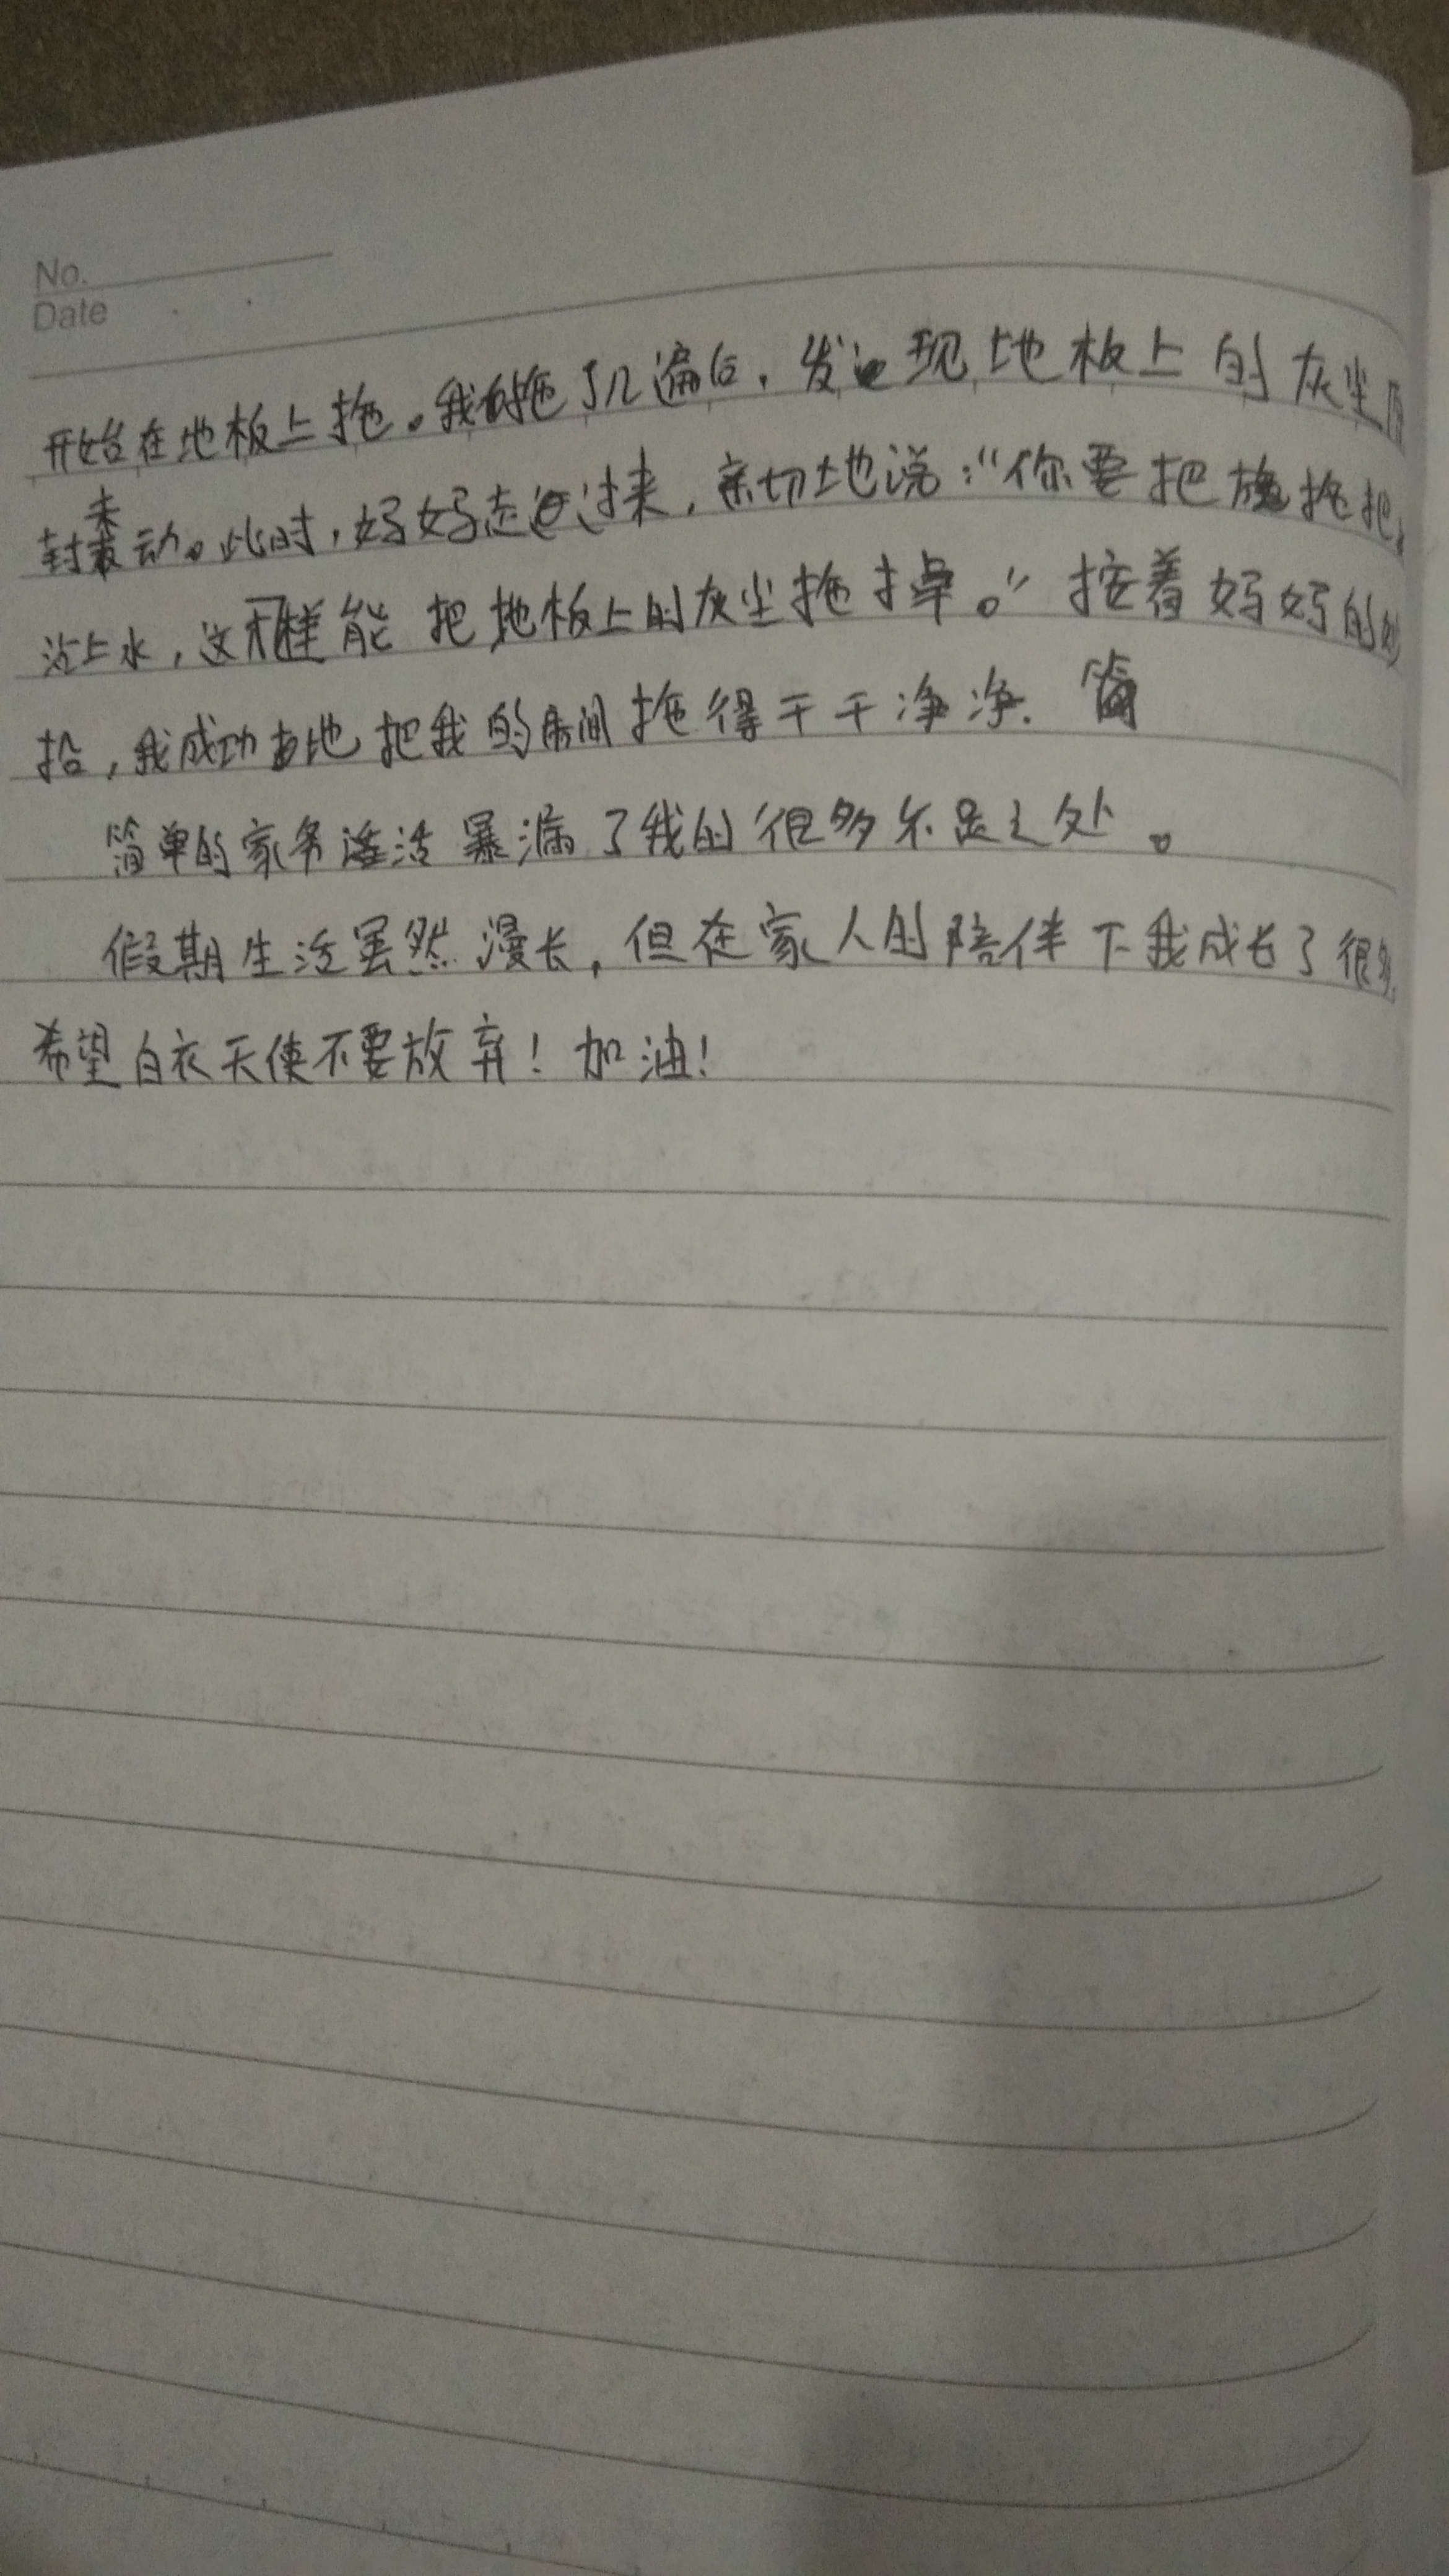 No.
Date
开始在地板上拖。我拖了几遍后，发现地板上的灰尘
封未动。此时，妈妈走过来，亲切地说：“你要把拖把
沾上水，这样能把地板上的灰尘拖掉。”按着妈妈的
我成功地把我的房间拖得干干净净.
简单的家务活暴漏了我的很多不足之处。
假期生活虽然漫长，但在家人的陪伴下我成长了很多
希望白衣天使不要放弃！加油！